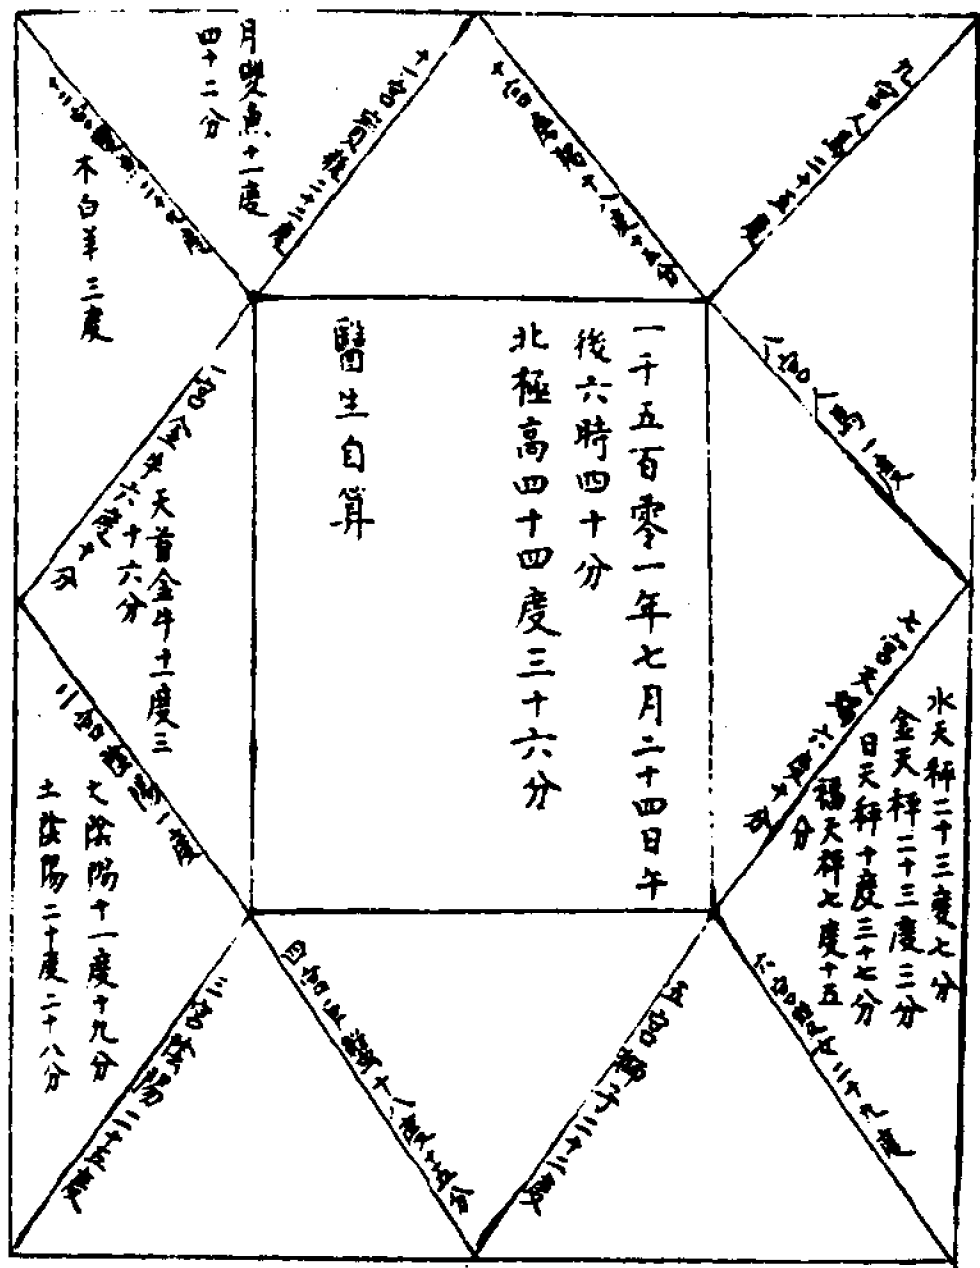 一千五百零一年七月二十四日午
後六時四十分
北極高四十四度三十六分
醫生自算
九宮人馬二十五度
十宮磨羯十八度十五分
十一宮寶瓶二十三度
月雙魚十一度
四十二分
十二宮雙魚二十九度
木白羊三度
一宮
六度十分
天首金牛十一度三
十六分
二宮陰陽一度
陰陽十一度十九分
土陰陽二十度二十八分
三宮陰陽二十五度
四宮巨蟹十八度十五分
五宮獅子二十三度
六宮雙女二十九度
七宮天秤六度十分
水天秤二十三度七分
金天秤二十三度三分
日天秤十度三十七分
福天秤七度十五
分
八宮人馬一度